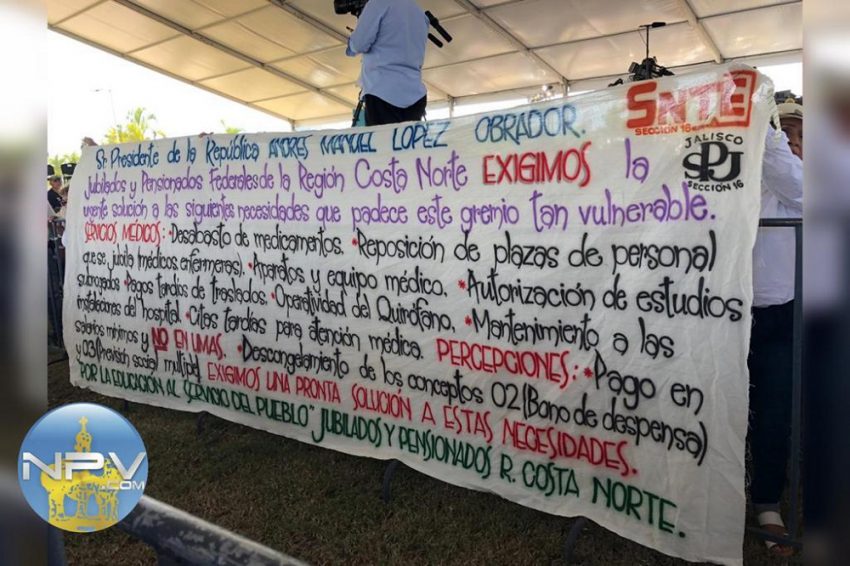 Sr. Presidente de la República ANDRES MANUEL LOPEZ OBRADOR.
Jubilados y Pensionados Federales de la Región Costa Norte EXIGIMOS la
urente solución a las siguientes necesidades que padece este gremio tan vulnerable.
SERVICIOS MÉDICOS: • Desabasto de medicamentos. • Reposición de plazas de personal
que se jubila (médicos, enfermeras). • Aparatos y equipo médico. • Autorización de estudios
subrogados • Pagos tardíos de traslados. • Operatividad del Quirófano. • Mantenimiento a las
instalaciones del hospital. • Citas tardías para atención médica. PERCEPCIONES: • Pago en
salarios mínimos y NO EN UMAS. • Descongelamiento de los conceptos 02 (Bono de despensa)
y 03 (Previsión social multiple) EXIGIMOS UNA PRONTA SOLUCIÓN A ESTAS NECESIDADES.
POR LA EDUCACIÓN AL SERVICIO DEL PUEBLO" JUBILADOS Y PENSIONADOS R. COSTA NORTE.
SNTE
SECCIÓN 16
JALISCO
SPJ
SECCIÓN 16
NPV
.COM